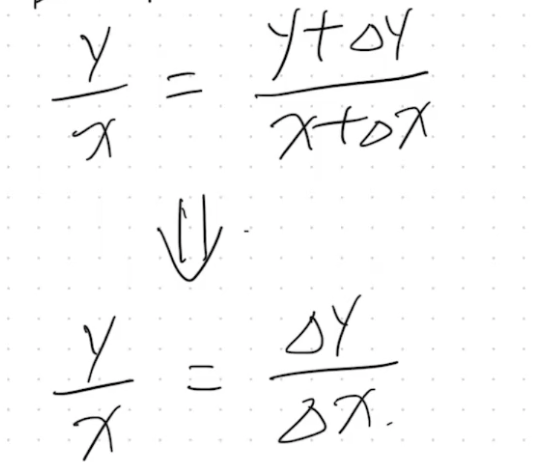 y/x = y+Δy/x+Δx
⇓
y/x = Δy/Δx.